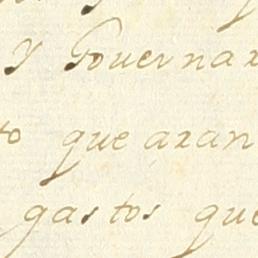 y Gouernax
to que axan
gastos que